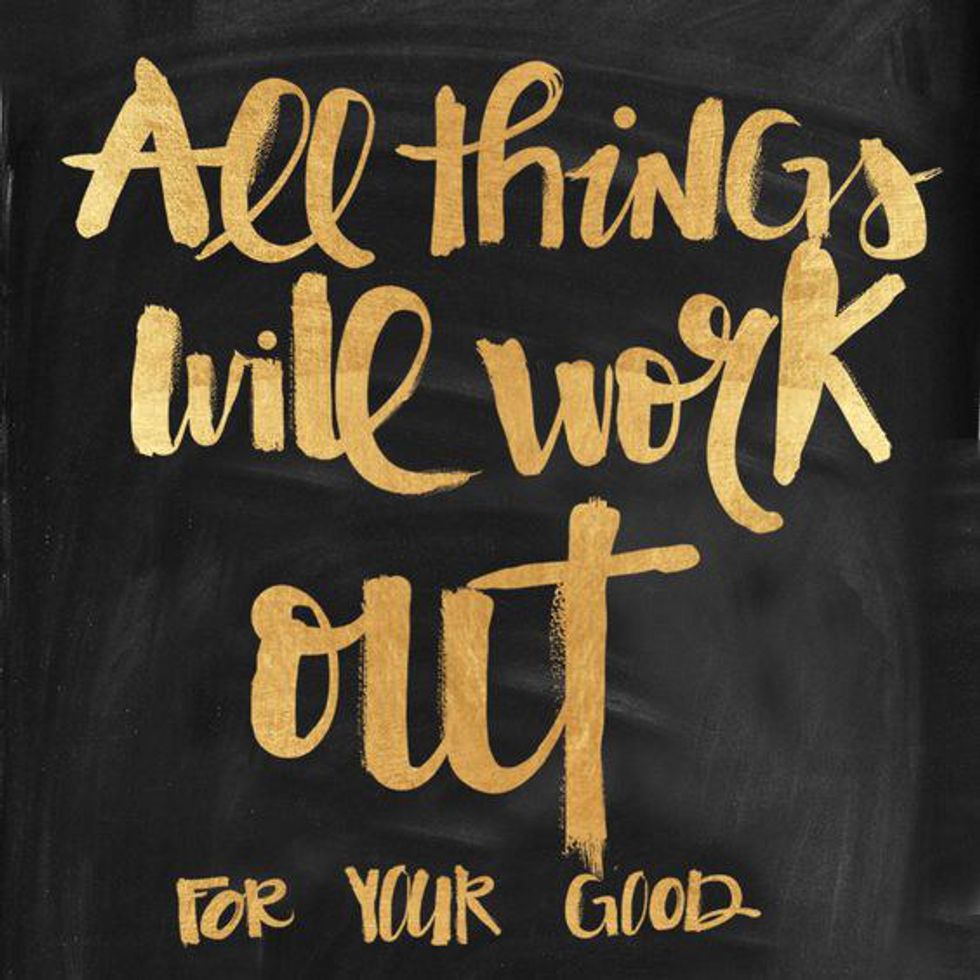 All thiNGs
will work
out
FOR YOUR GOOD